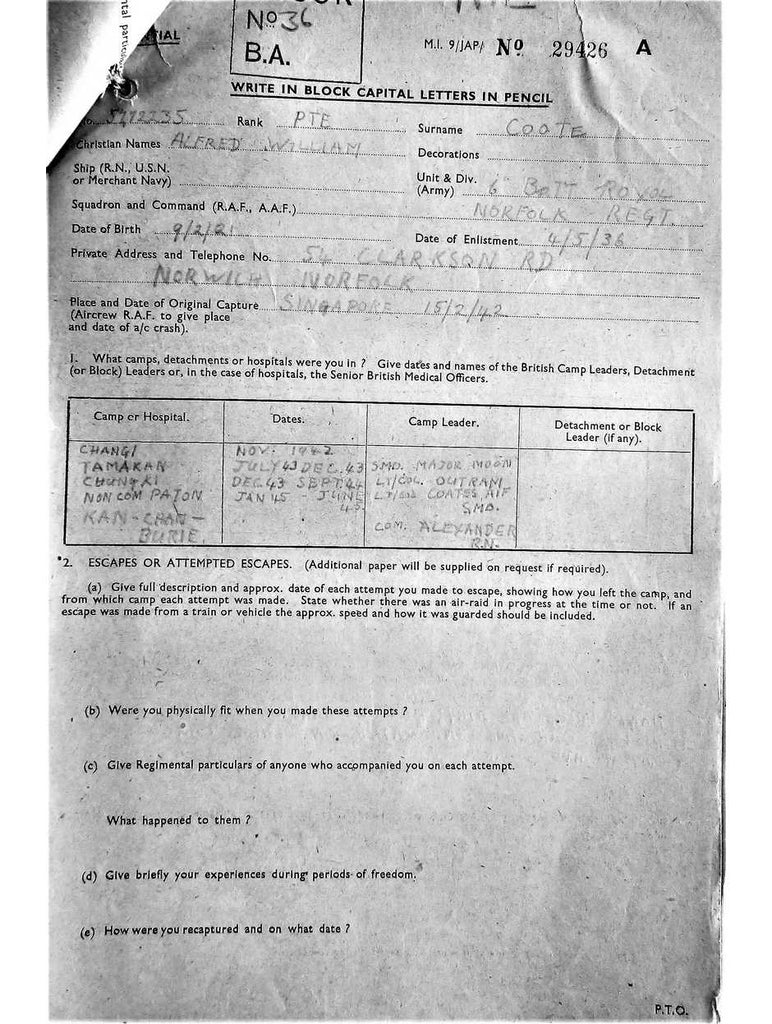 ntal particu
TIAL
Nº 36
B.A.
M.I. 9/JAP/ Nº 29426 A
WRITE IN BLOCK CAPITAL LETTERS IN PENCIL
Rank PTE Surname COOTE
Christian Names ALFRED WILLIAM Decorations
Ship (R.N., U.S.N. or Merchant Navy)
Unit & Div. (Army) 6 Batt Royal
Squadron and Command (R.A.F., A.A.F.) NORFOLK REGT.
Date of Birth 9/2/21 Date of Enlistment 4/5/36
Private Address and Telephone No. 54 CLARKSON RD
NORWICH NORFOLK
Place and Date of Original Capture SINGAPORE 15/2/42
(Aircrew R.A.F. to give place
and date of a/c crash).
1. What camps, detachments or hospitals were you in ? Give dates and names of the British Camp Leaders, Detachment
(or Block) Leaders or, in the case of hospitals, the Senior British Medical Officers.
Camp or Hospital. Dates. Camp Leader. Detachment or Block
Leader (if any).
CHANGI NOV. 1942
TAMAKAN JULY 43 DEC. 43 SMO. MAJOR MOON
CHUNGKI DEC 43 SEPT. 44 LT/COL. OUTRAM
NON COM PATON JAN 45 - JUNE 45. LT/COL COATES AIF
SMO.
KAN-CHAN- COM. ALEXANDER
BURIE. R.N.
*2. ESCAPES OR ATTEMPTED ESCAPES. (Additional paper will be supplied on request if required).
(a) Give full description and approx. date of each attempt you made to escape, showing how you left the camp, and
from which camp each attempt was made. State whether there was an air-raid in progress at the time or not. If an
escape was made from a train or vehicle the approx. speed and how it was guarded should be included.
(b) Were you physically fit when you made these attempts ?
(c) Give Regimental particulars of anyone who accompanied you on each attempt.
What happened to them ?
(d) Give briefly your experiences during periods of freedom.
(e) How were you recaptured and on what date ?
P.T.O.